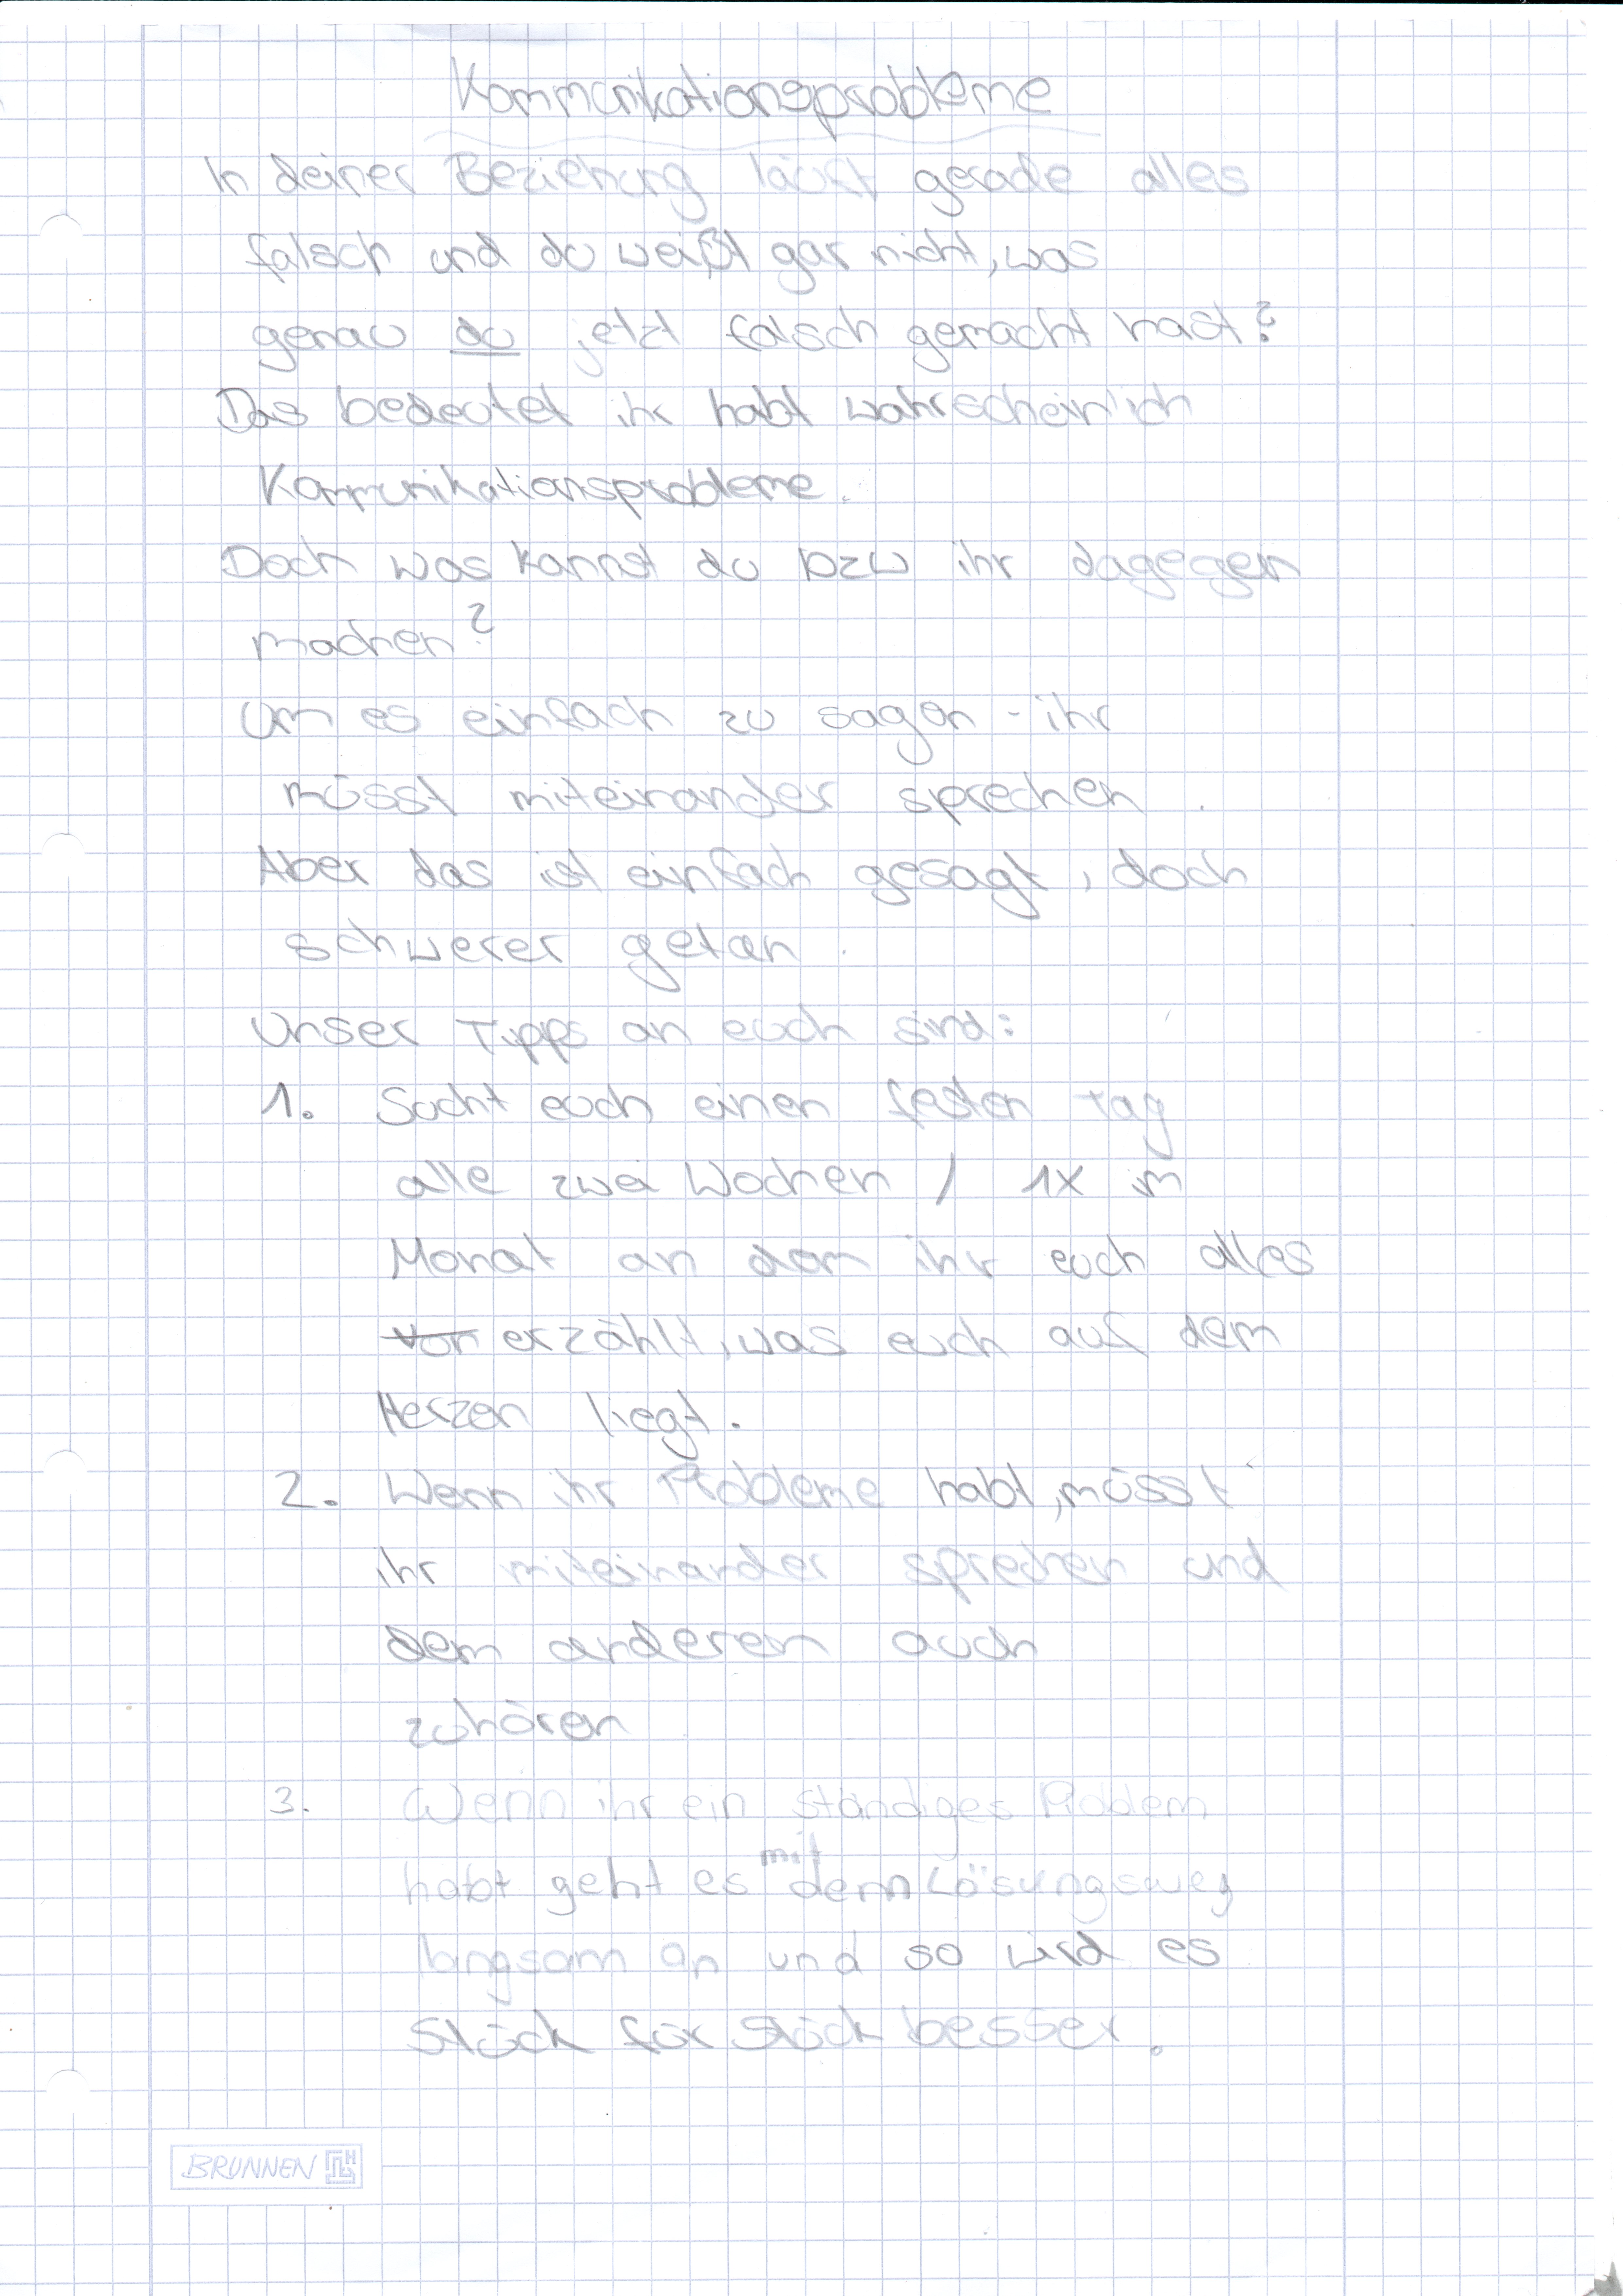 Kommunikationsprobleme
In deiner Beziehung läuft gerade alles
falsch und du weißt gar nicht, was
genau du jetzt falsch gemacht hast?
Das bedeutet ihr habt wahrscheinlich
Kommunikationsprobleme.
Doch was kannst du bzw ihr dagegen
machen?
Um es einfach zu sagen - ihr
müsst miteinander sprechen.
Aber das ist einfach gesagt, doch
schwerer getan.
Unser Tipps an euch sind:
1. Sucht euch einen festen Tag
alle zwei Wochen / 1x im
Monat an dem ihr euch alles
von erzählt, was euch auf dem
Herzen liegt.
2. Wenn ihr Probleme habt, müsst
ihr miteinander sprechen und
dem anderem auch
zuhören
3. Wenn ihr ein ständiges Problem
habt geht es mit dem Lösungsweg
langsam an und so wird es
Stück für Stück besser.
BRUNNEN